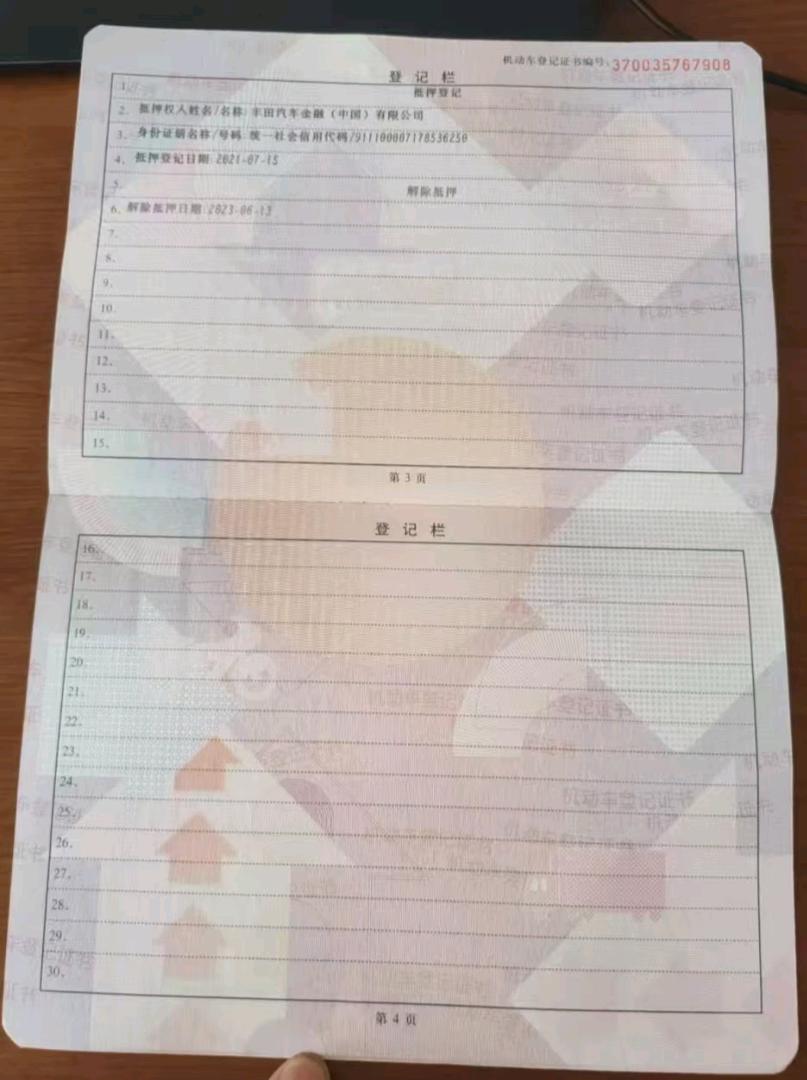 机动车登记证书编号:370035767908
登 记 栏
1. 抵押登记
2. 抵押权人姓名/名称:丰田汽车金融（中国）有限公司
3. 身份证明名称/号码:统一社会信用代码/911100007178536250
4. 抵押登记日期:2021-07-15
5. 解除抵押
6. 解除抵押日期:2023-06-13
7.
8.
9.
10.
11.
12.
13.
14.
15.
第 3 页
登 记 栏
16.
17.
18.
19.
20.
21.
22.
23.
24.
25.
26.
27.
28.
29.
30.
第 4 页